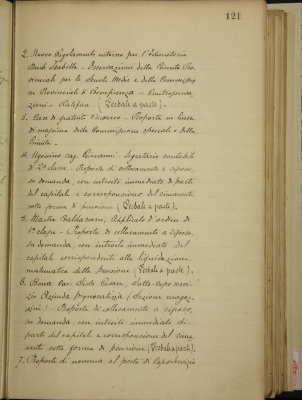 121
2. Nuovo Regolamento interno per l'Educatorio
Duch. Isabella - Osservazioni della Giunta Pro-
vinciale per le Scuole Medie e della Commissio-
ne Provinciale di Beneficenza - Controosserva-
zioni - Ratifica (Verbale a parte).
3. Case di
- Proposte in linea
di massima della Commissione speciale e della
Giunta -
4. rag. Giovanni - Segretario contabile
di 2ª classe - Proposta di collocamento a riposo,
su domanda, con introito immediato di parte
del capitale e corrispensione del rimanente
sotto forma di pensione (Verbale a parte).
5. Baldassare, Applicato d'ordine di
1ª classe - Proposta di collocamento a riposo,
su domanda, con introito immediato del
capitale corrispondente alla liquidazione
matematica della pensione (Verbale a parte).
6. Cav. Sotto-capo servi-
zio Azienda Annonaria (Sezione magaz-
zini) - Proposta di collocamento a riposo,
su domanda, con introito immediato di
parte del capitale e corrispensione del rima-
nente sotto forma di pensione (Verbale a parte).
7. Proposta di nomina al posto di Caposervizio